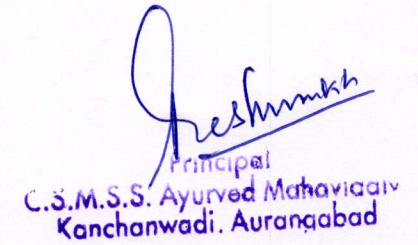 Principal
C.S.M.S.S. Ayurved Mahavidalv
Kanchanwadi. Aurangabad